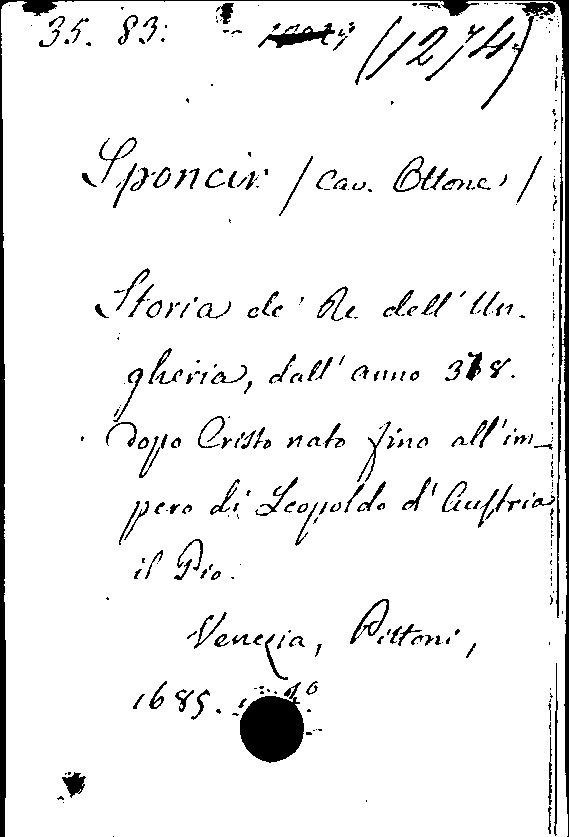 35. 83. (1274)
Sponcir / Cav. Ottone /
Storia de' Re dell' Un-
gheria, dall' anno 378.
dopo Cristo nato fino all' im-
pero di Leopoldo d' Austria
il Pio.
Venezia, Pittoni,
1685. 4°